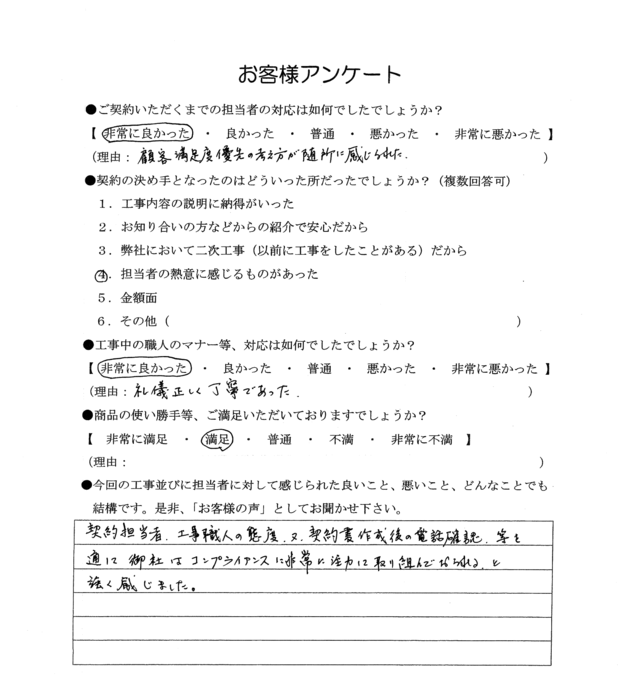 お客様アンケート
●ご契約いただくまでの担当者の対応は如何でしたでしょうか？
【 非常に良かった ・ 良かった ・ 普通 ・ 悪かった ・ 非常に悪かった 】
(理由： 顧客満足度優先の考え方が随所に感じられた. )
●契約の決め手となったのはどういった所だったでしょうか？（複数回答可）
１．工事内容の説明に納得がいった
２．お知り合いの方などからの紹介で安心だから
３．弊社において二次工事（以前に工事をしたことがある）だから
④．担当者の熱意に感じるものがあった
５．金額面
６．その他（ ）
●工事中の職人のマナー等、対応は如何でしたでしょうか？
【 非常に良かった ・ 良かった ・ 普通 ・ 悪かった ・ 非常に悪かった 】
(理由： 礼儀正しく丁寧であった. )
●商品の使い勝手等、ご満足いただいておりますでしょうか？
【 非常に満足 ・ 満足 ・ 普通 ・ 不満 ・ 非常に不満 】
(理由： )
●今回の工事並びに担当者に対して感じられた良いこと、悪いこと、どんなことでも
結構です。是非、「お客様の声」としてお聞かせ下さい。
契約担当者、工事職人の態度、又、契約書作成後の電話確認、等を
通じ 御社はコンプライアンスに非常に注力に取り組んでおられる、と
強く感じました。